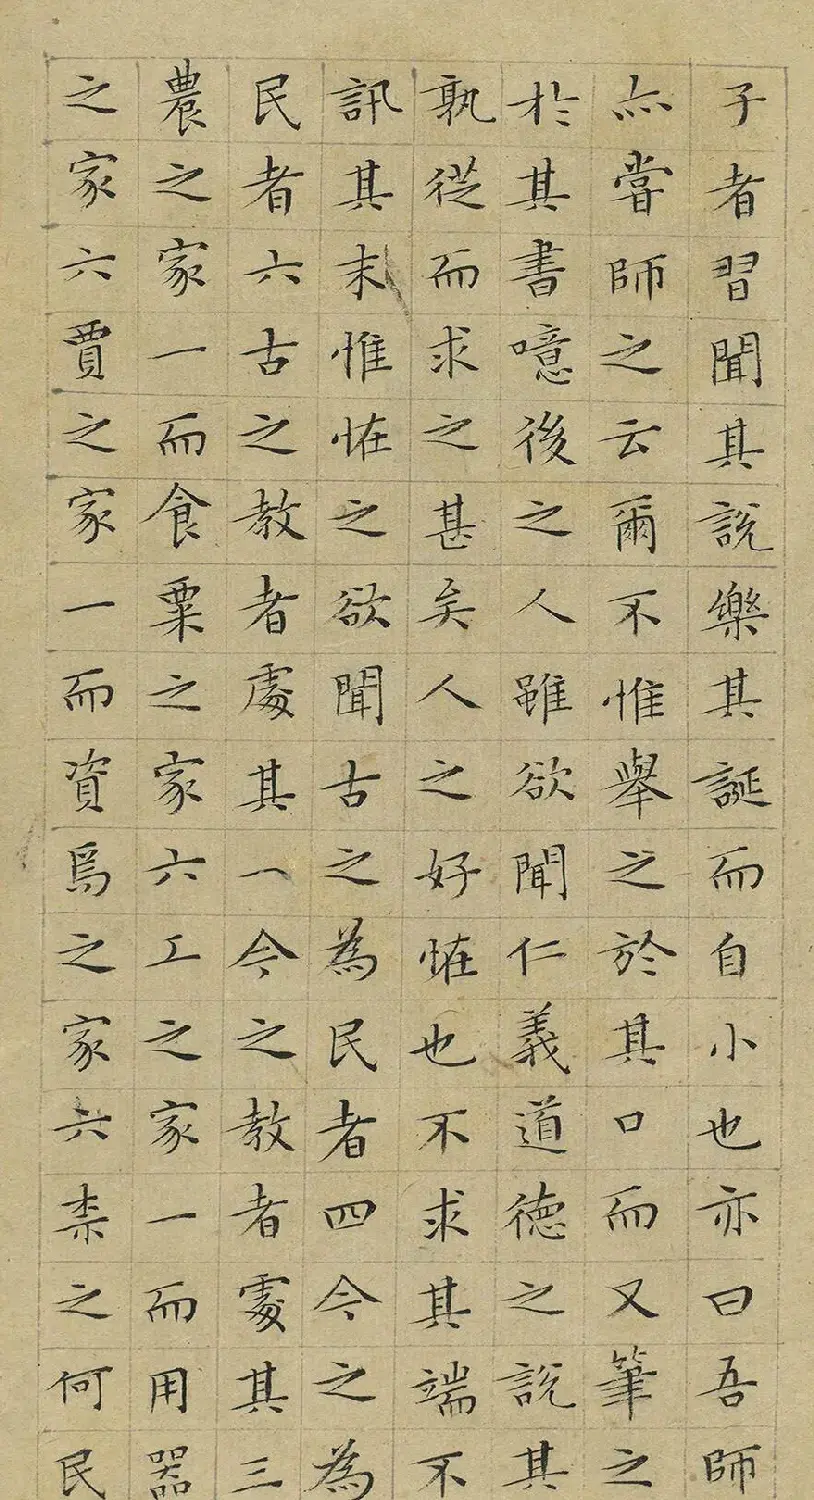 子者習聞其說樂其誕而自小也亦曰吾師
亦嘗師之云爾不惟舉之於其口而又筆之
於其書噫後之人雖欲聞仁義道德之說其
孰從而求之甚矣人之好恠也不求其端不
訊其末惟恠之欲聞古之為民者四今之為
民者六古之教者處其一今之教者處其三
農之家一而食粟之家六工之家一而用器
之家六賈之家一而資焉之家六柰之何民